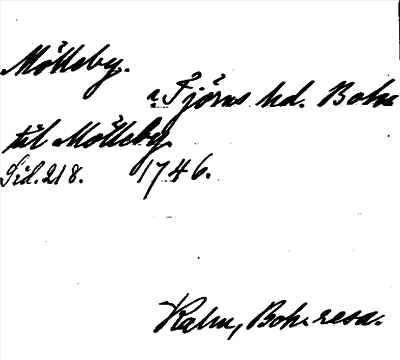 Mölleby.
i Fjöms hd. Boh.
til Mölleby.
Sid. 218. 1746.
Kalm, Boh. resa.